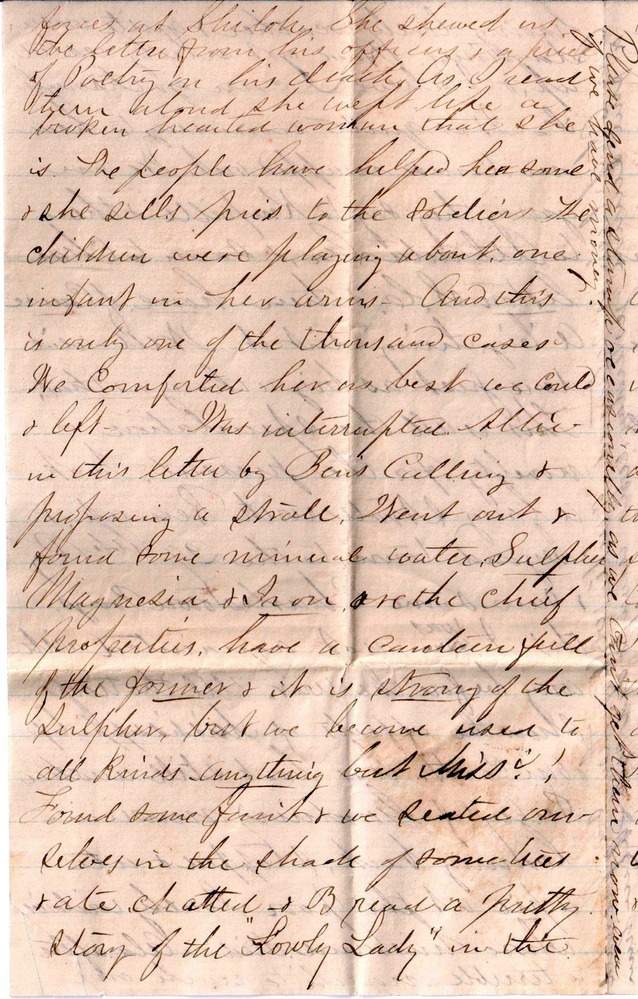 forces at Shiloh. She shewed us
the letter from his officers & a piece
of Poetry on his death. As I read
them aloud she wept like a
broken hearted woman that she
is. The people have helped her some
& she sells pies to the soldiers. The
children were playing about, one
infant in her arms - And this
is only one of the thousand cases
We Comforted her as best we could
& left - Was interrupted Allie
in this letter by Bens Calling &
proposing a stroll. Went out &
found some mineral water, Sulpher
Magnesia & Iron, are the chief
properties, have a canteen full
of the former & it is strong of the
Sulpher, but we become used to
all kinds anything but Miss!!
Found some fruit & we seated our-
selves in the shade of some trees
& ate chatted - & B read a pretty
story of the "Lowly Lady" in the
Please send a stamp occasionally as we Can't get them now even
if we have money.